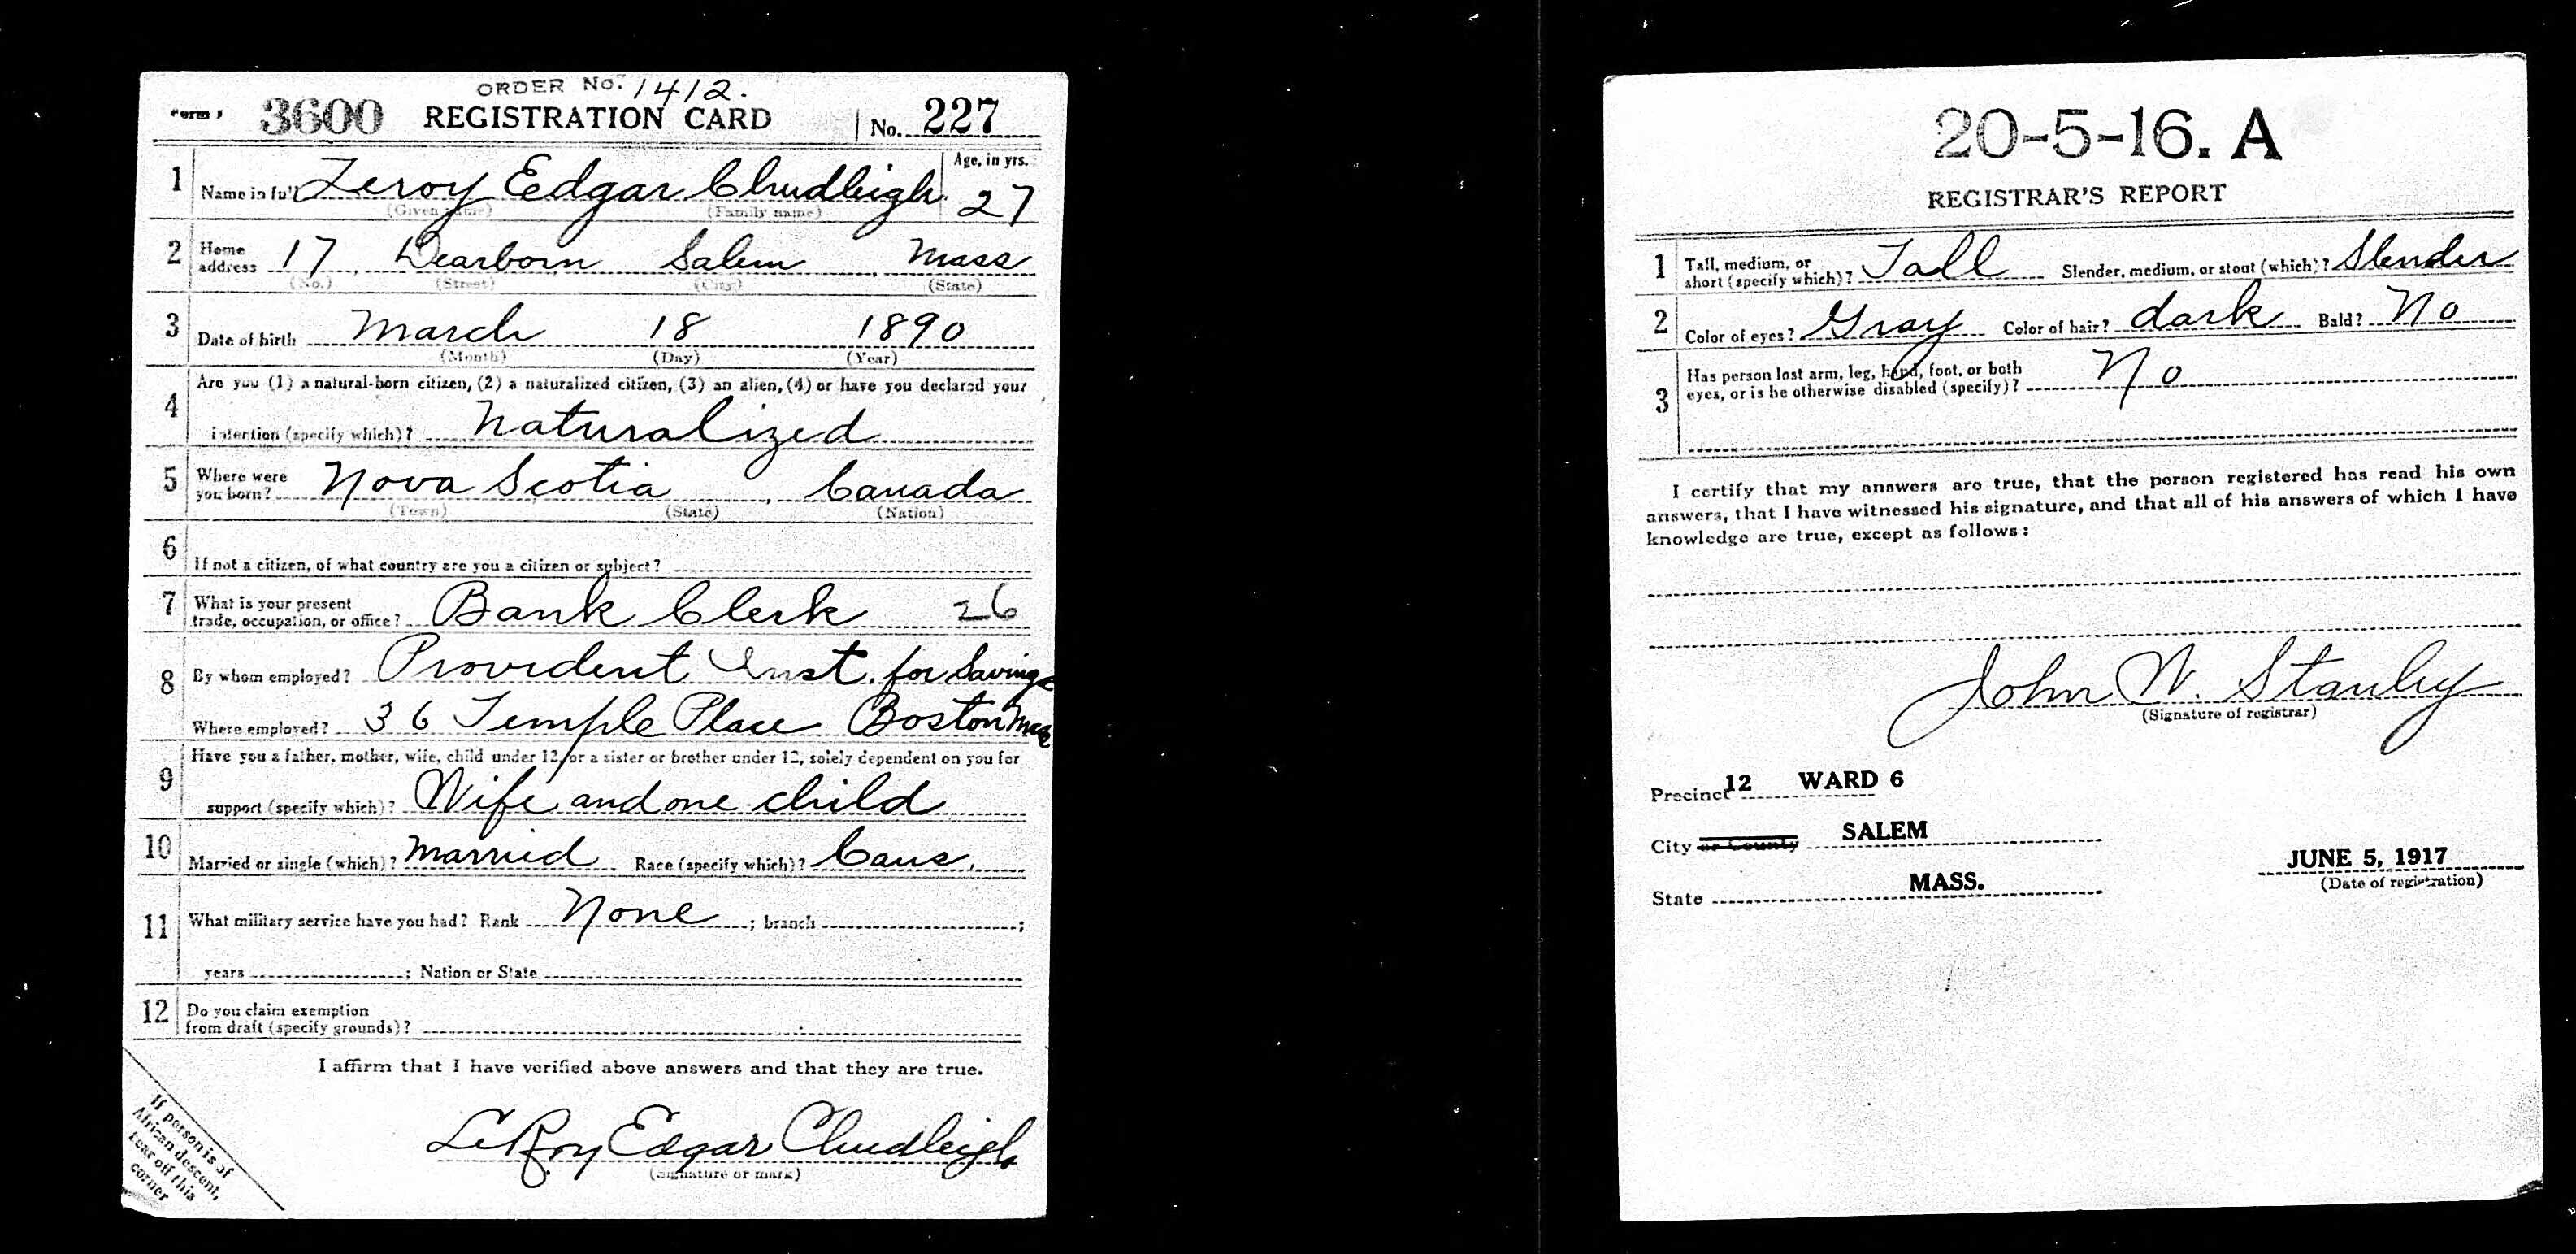 ORDER No. 1412.
Form 1 3600 REGISTRATION CARD No. 227
1 Name in full Leroy Edgar Chudleigh Age, in yrs. 27
(Given name) (Family name)
2 Home address 17 Dearborn Salem, Mass
(No.) (Street) (City) (State)
3 Date of birth March 18 1890
(Month) (Day) (Year)
4 Are you (1) a natural-born citizen, (2) a naturalized citizen, (3) an alien, (4) or have you declared your
intention (specify which)? Naturalized
5 Where were you born? Nova Scotia, Canada
(Town) (State) (Nation)
6 If not a citizen, of what country are you a citizen or subject?
7 What is your present trade, occupation, or office? Bank Clerk 26
8 By whom employed? Provident Inst. for Savings
Where employed? 36 Temple Place Boston Mass
9 Have you a father, mother, wife, child under 12, or a sister or brother under 12, solely dependent on you for
support (specify which)? Wife and one child
10 Married or single (which)? Married Race (specify which)? Caus.
11 What military service have you had? Rank None ; branch ;
years ; Nation or State
12 Do you claim exemption from draft (specify grounds)?
I affirm that I have verified above answers and that they are true.
LeRoy Edgar Chudleigh
(Signature or mark)
If person is of
African descent,
tear off this
corner
20-5-16. A
REGISTRAR'S REPORT
1 Tall, medium, or short (specify which)? Tall Slender, medium, or stout (which)? Slender
2 Color of eyes? Gray Color of hair? dark Bald? No
3 Has person lost arm, leg, hand, foot, or both eyes, or is he otherwise disabled (specify)? No
I certify that my answers are true, that the person registered has read his own
answers, that I have witnessed his signature, and that all of his answers of which I have
knowledge are true, except as follows:
John W. Stanley
(Signature of registrar)
Precinct 12 WARD 6
City or County SALEM
State MASS.
JUNE 5, 1917
(Date of registration)